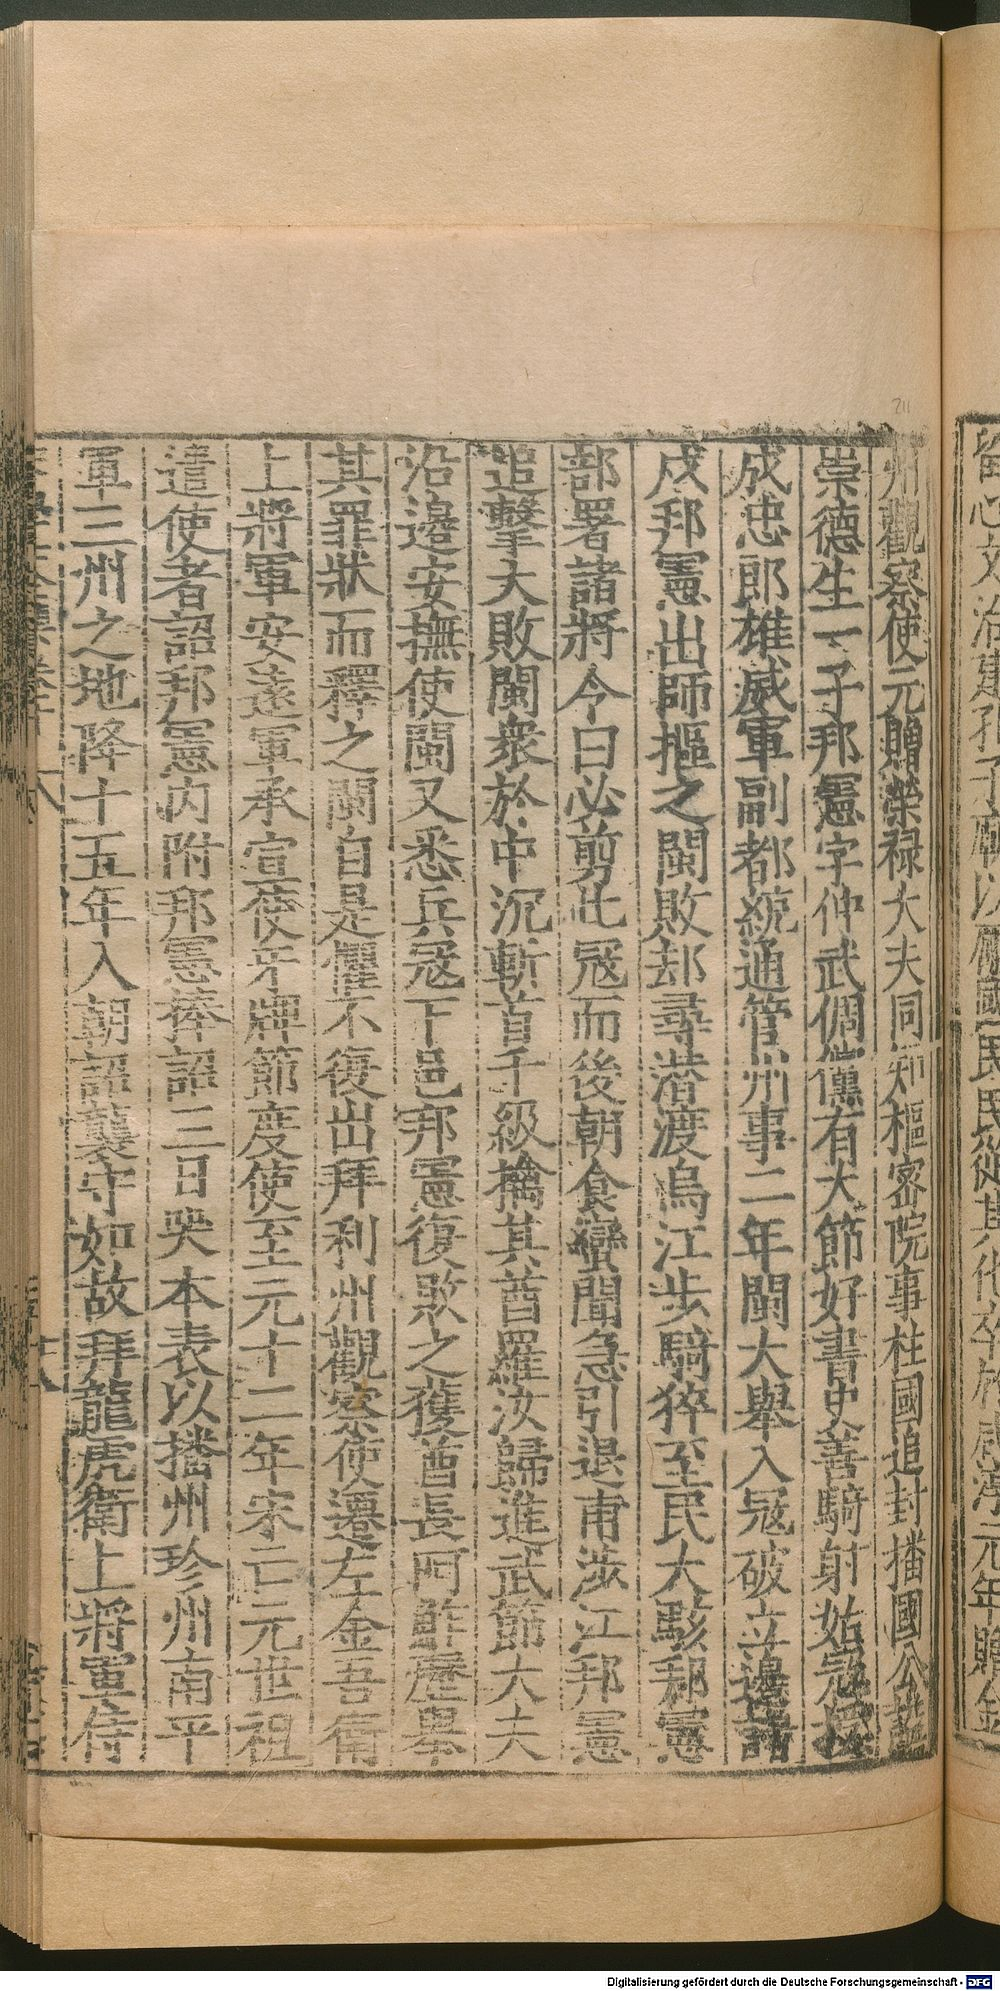 州觀察使元贈榮祿大夫同知樞密院事柱國追封播國公諡
崇德生一子邦憲字仲武倜儻有大節好書史善騎射始冠授
成忠郎雄威軍副都統通管州事二年閩大舉入寇破立邊諸
戍邦憲出師摳之閩敗却尋潛渡烏江步騎猝至民大駭邦憲
部署諸將今日必剪此寇而後朝食蠻聞急引退甫涉江邦憲
追擊大敗閩衆於中沉斬首千級擒其酋羅汝歸進武節大夫
沿邊安撫使閩又悉兵寇下邑邦憲復敗之獲酋長阿鮓歷舉
其罪狀而釋之閩自是懼不復出拜利州觀察使遷左金吾衛
上將軍安遠軍承宣使牙牌節度使至元十二年宋亡元世祖
遣使者詔邦憲內附邦憲捧詔三日哭奉表以播州珍州南平
軍三州之地降十五年入朝詔襲守如故拜龍虎衛上將軍侍
211
Digitalisierung gefördert durch die Deutsche Forschungsgemeinschaft - DFG